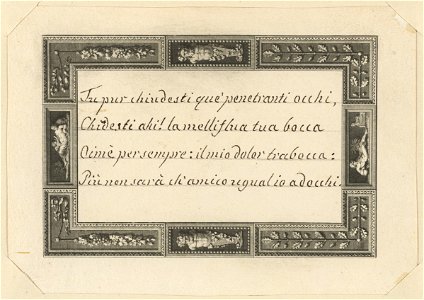 Tu pur chiudesti que' penetranti occhi,
Chidesti ahi! la melliflua tua bocca
Oimè per sempre: il mio dolor trabocca:
Più non sarà ch'amico ugual io adocchi.